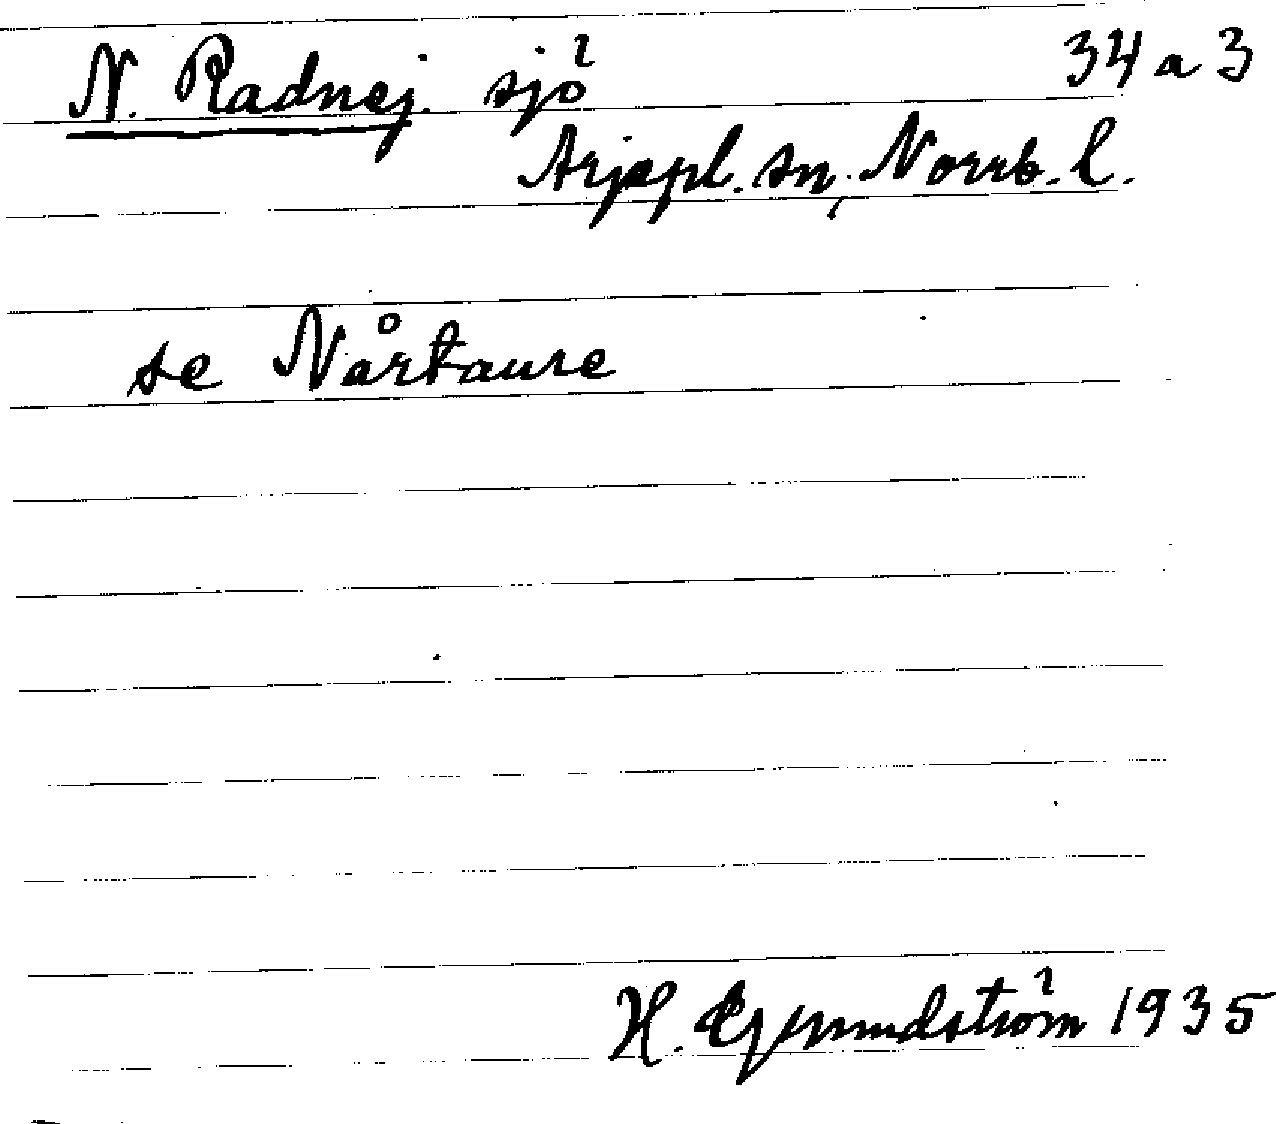 N. Radnej. sjö 34 a 3
Arjepl. sn, Norrb. l.
se Nårtaure
H. Grundström 1935